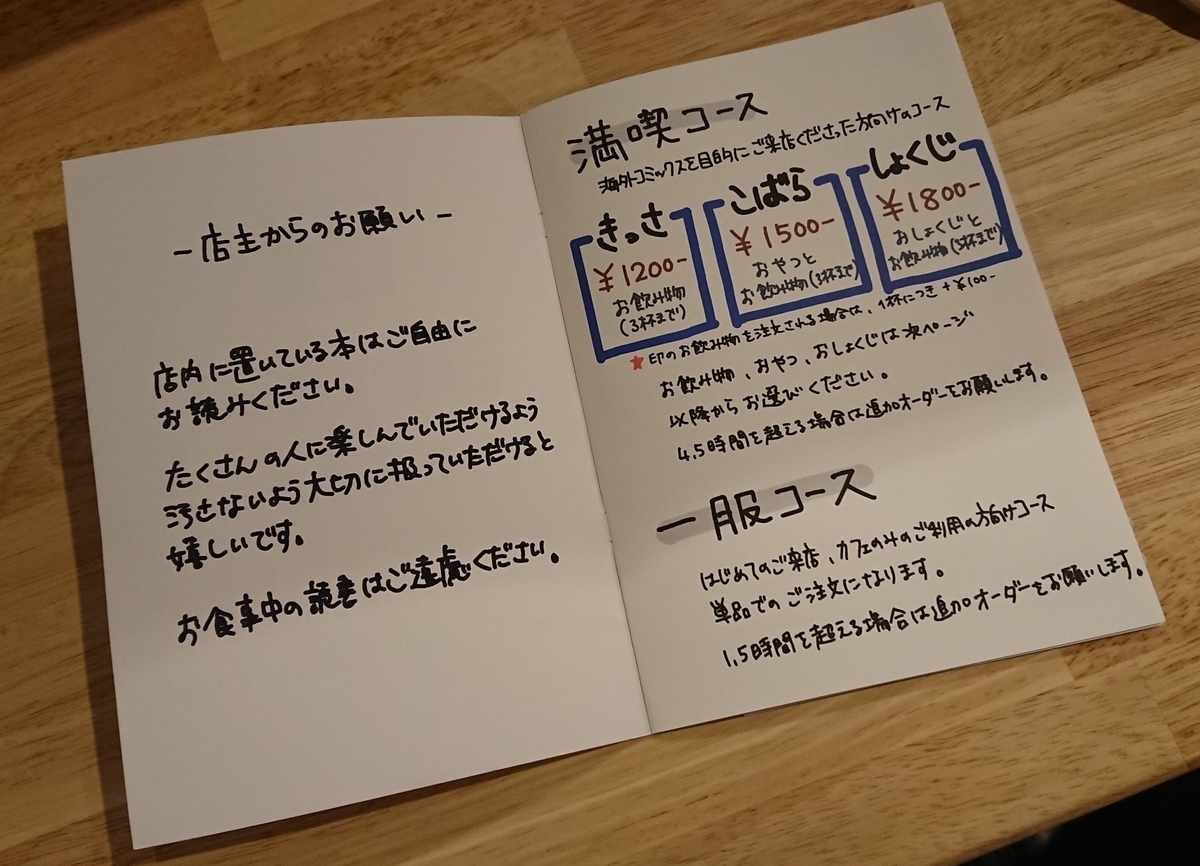 －店主からのお願い－
店内に置いている本はご自由に
お読みください。
たくさんの人に楽しんでいただけるよう
汚さないよう大切に扱っていただけると
嬉しいです。
お食事中の読書はご遠慮ください。
満喫コース
海外コミックスを目的にご来店くださった方向けのコース
きっさ
¥1200-
お飲み物
(3杯まで)
こばら
¥1500-
おやつと
お飲み物(3杯まで)
しょくじ
¥1800-
おしょくじと
お飲み物(3杯まで)
★印のお飲み物を注文される場合は、1杯につき+¥100-
お飲み物、おやつ、おしょくじは次ページ
以降からお選びください。
4.5時間を超える場合は追加オーダーをお願いします。
一服コース
はじめてのご来店、カフェのみのご利用の方向けコース
単品でのご注文になります。
1.5時間を超える場合は追加オーダーをお願いします。